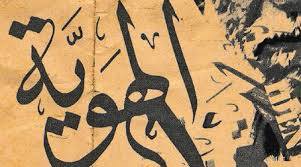 الهويّة